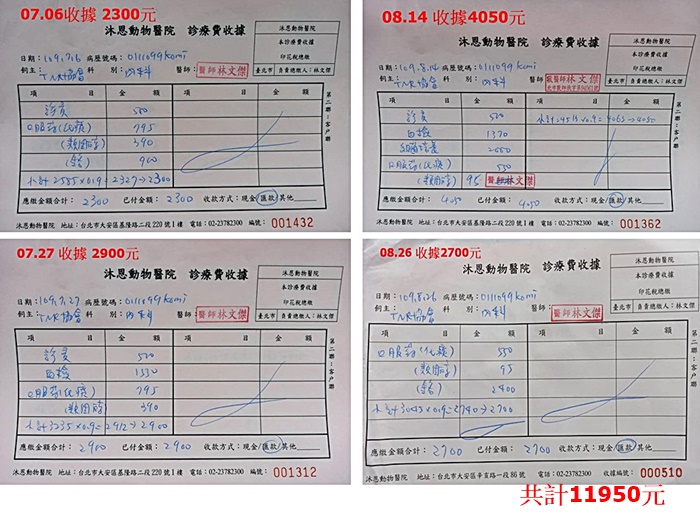 07.06 收據 2300元
沐恩動物醫院 診療費收據
沐恩動物醫院
本診療費收據
印花稅總繳
臺北市 負責總繳人：林文傑
日期：109.7.6 病歷號碼：0111099komi
飼主：TNR協會 科別：內科 醫師：醫師林文傑
項目 金額 項目 金額
診費 500
口服藥(化痰) 795
(類固醇) 390
900
小計2585×0.9=2327→2300
應繳金額合計：2300 已付金額：2300 收款方式：現金/匯款/其他
沐恩動物醫院 地址：台北市大安區基隆路二段220號1樓 電話：02-23782300 編號：001432
第二聯：客戶聯
08.14 收據4050元
沐恩動物醫院 診療費收據
沐恩動物醫院
本診療費收據
印花稅總繳
臺北市 負責總繳人：林文傑
日期：109.8.14 病歷號碼：0111099komi
飼主：TNR協會 科別：內科 醫師：林文傑
項目 金額 項目 金額
診費 500
血檢 1370
細菌培養 2000
口服藥(化痰) 550
(類固醇) 95 醫師林文傑
小計4515×0.9=4063→4050
應繳金額合計：4050 已付金額：4050 收款方式：現金/匯款/其他
沐恩動物醫院 地址：台北市大安區基隆路二段220號1樓 電話：02-23782300 編號：001362
第二聯：客戶聯
07.27 收據 2900元
沐恩動物醫院 診療費收據
沐恩動物醫院
本診療費收據
印花稅總繳
臺北市 負責總繳人：林文傑
日期：109.7.27 病歷號碼：0111099komi
飼主：TNR協會 科別：內科 醫師：醫師林文傑
項目 金額 項目 金額
診費 500
血檢 1550
口服藥(化痰) 795
(類固醇) 390
小計3235×0.9=2912→2900
應繳金額合計：2900 已付金額：2900 收款方式：現金/匯款/其他
沐恩動物醫院 地址：台北市大安區基隆路二段220號1樓 電話：02-23782300 編號：001312
第二聯：客戶聯
08.26 收據2700元
沐恩動物醫院 診療費收據
沐恩動物醫院
本診療費收據
印花稅總繳
臺北市 負責總繳人：林文傑
日期：109.8.26 病歷號碼：0111099komi
飼主：TNR協會 科別：內科 醫師：醫師林文傑
項目 金額 項目 金額
口服藥(化痰) 550
(類固醇) 95
2400
小計3045×0.9=2740→2700
應繳金額合計：2700 已付金額：2700 收款方式：現金/匯款/其他
沐恩動物醫院 地址：台北市大安區辛亥路一段86號 電話：02-23782300 收據編號：000510
第二聯：客戶聯
共計11950元